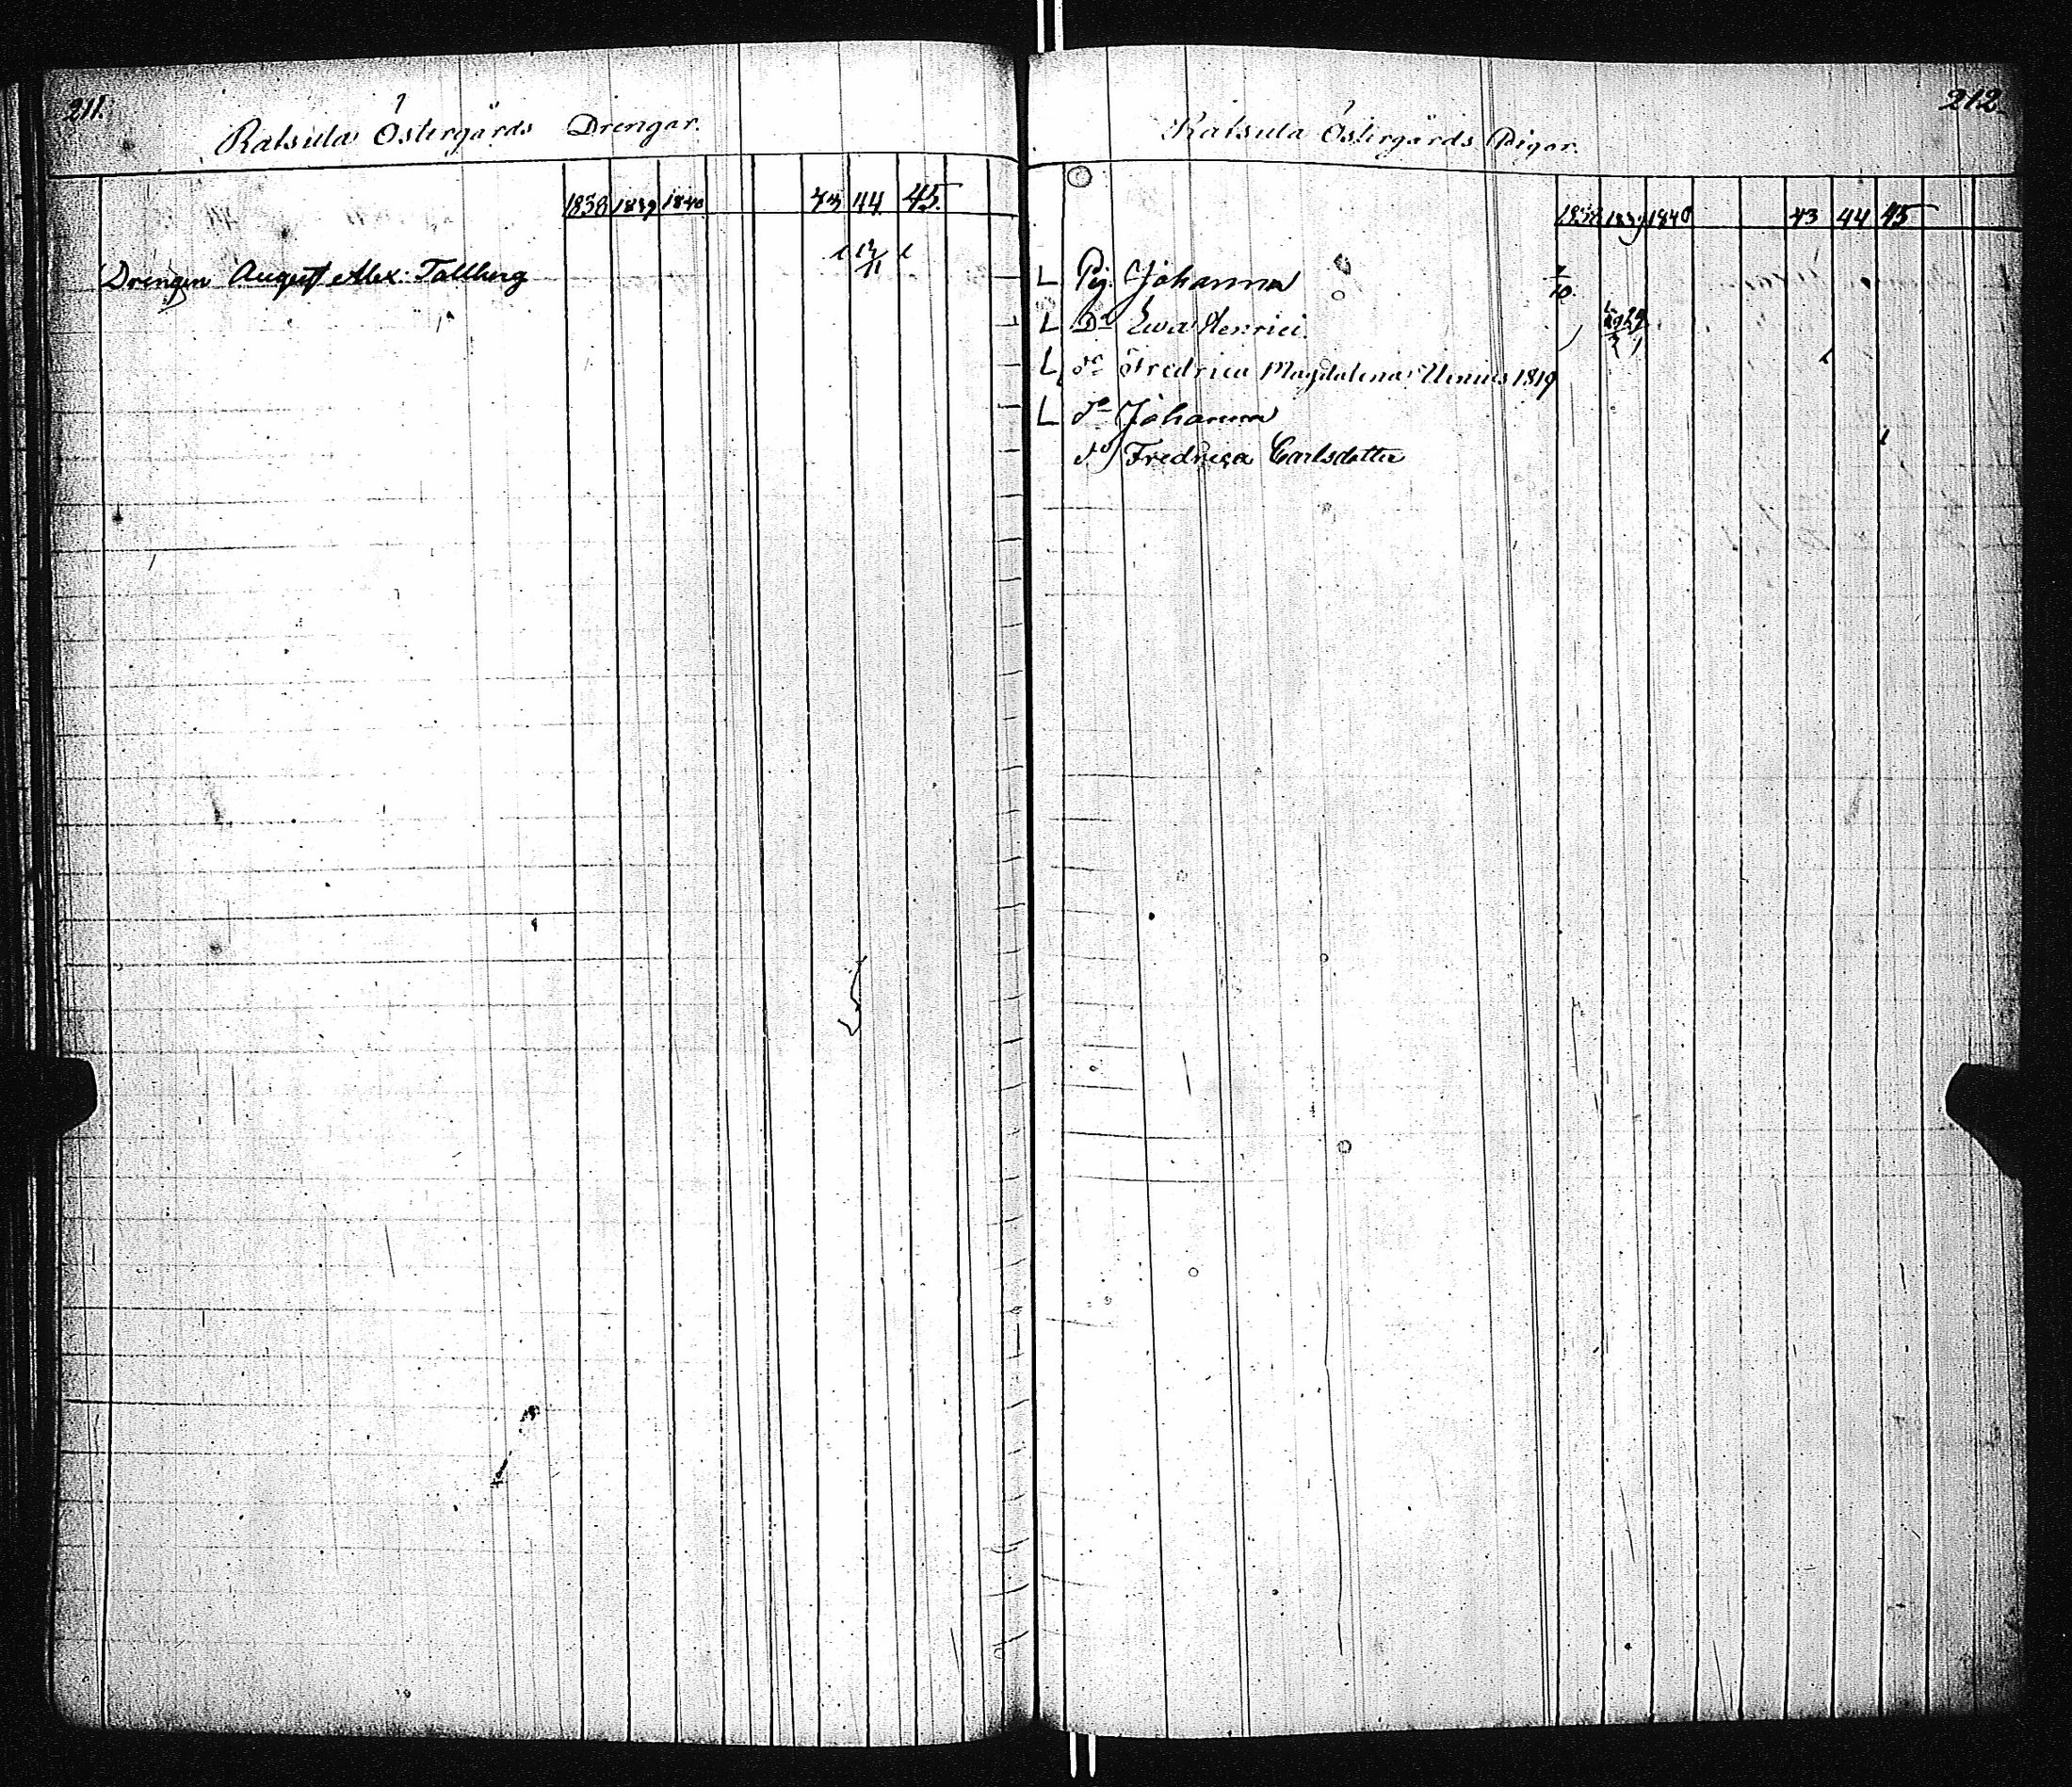 211.
Ratsula Östergårds Drengar.
1838 1839 1840 43 44 45
Drengen August Alex: Tallberg
212
Ratsula Östergårds Pigor.
1838 1839 1840 43 44 45
L Pig. Johanna 7/10
L Do Ewa Henrici
L do Fredrica Magdalena 1819
L do Johanna
do Fredrica Carlsdotter